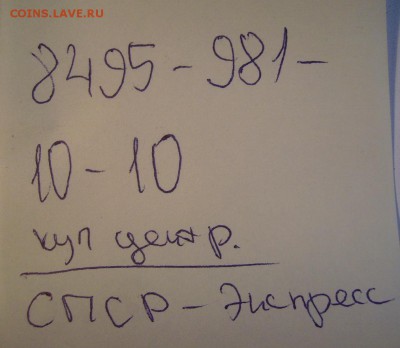 COINS.LAVE.RU
8495-981-
10-10
кул центр.
СПСР-Экспресс